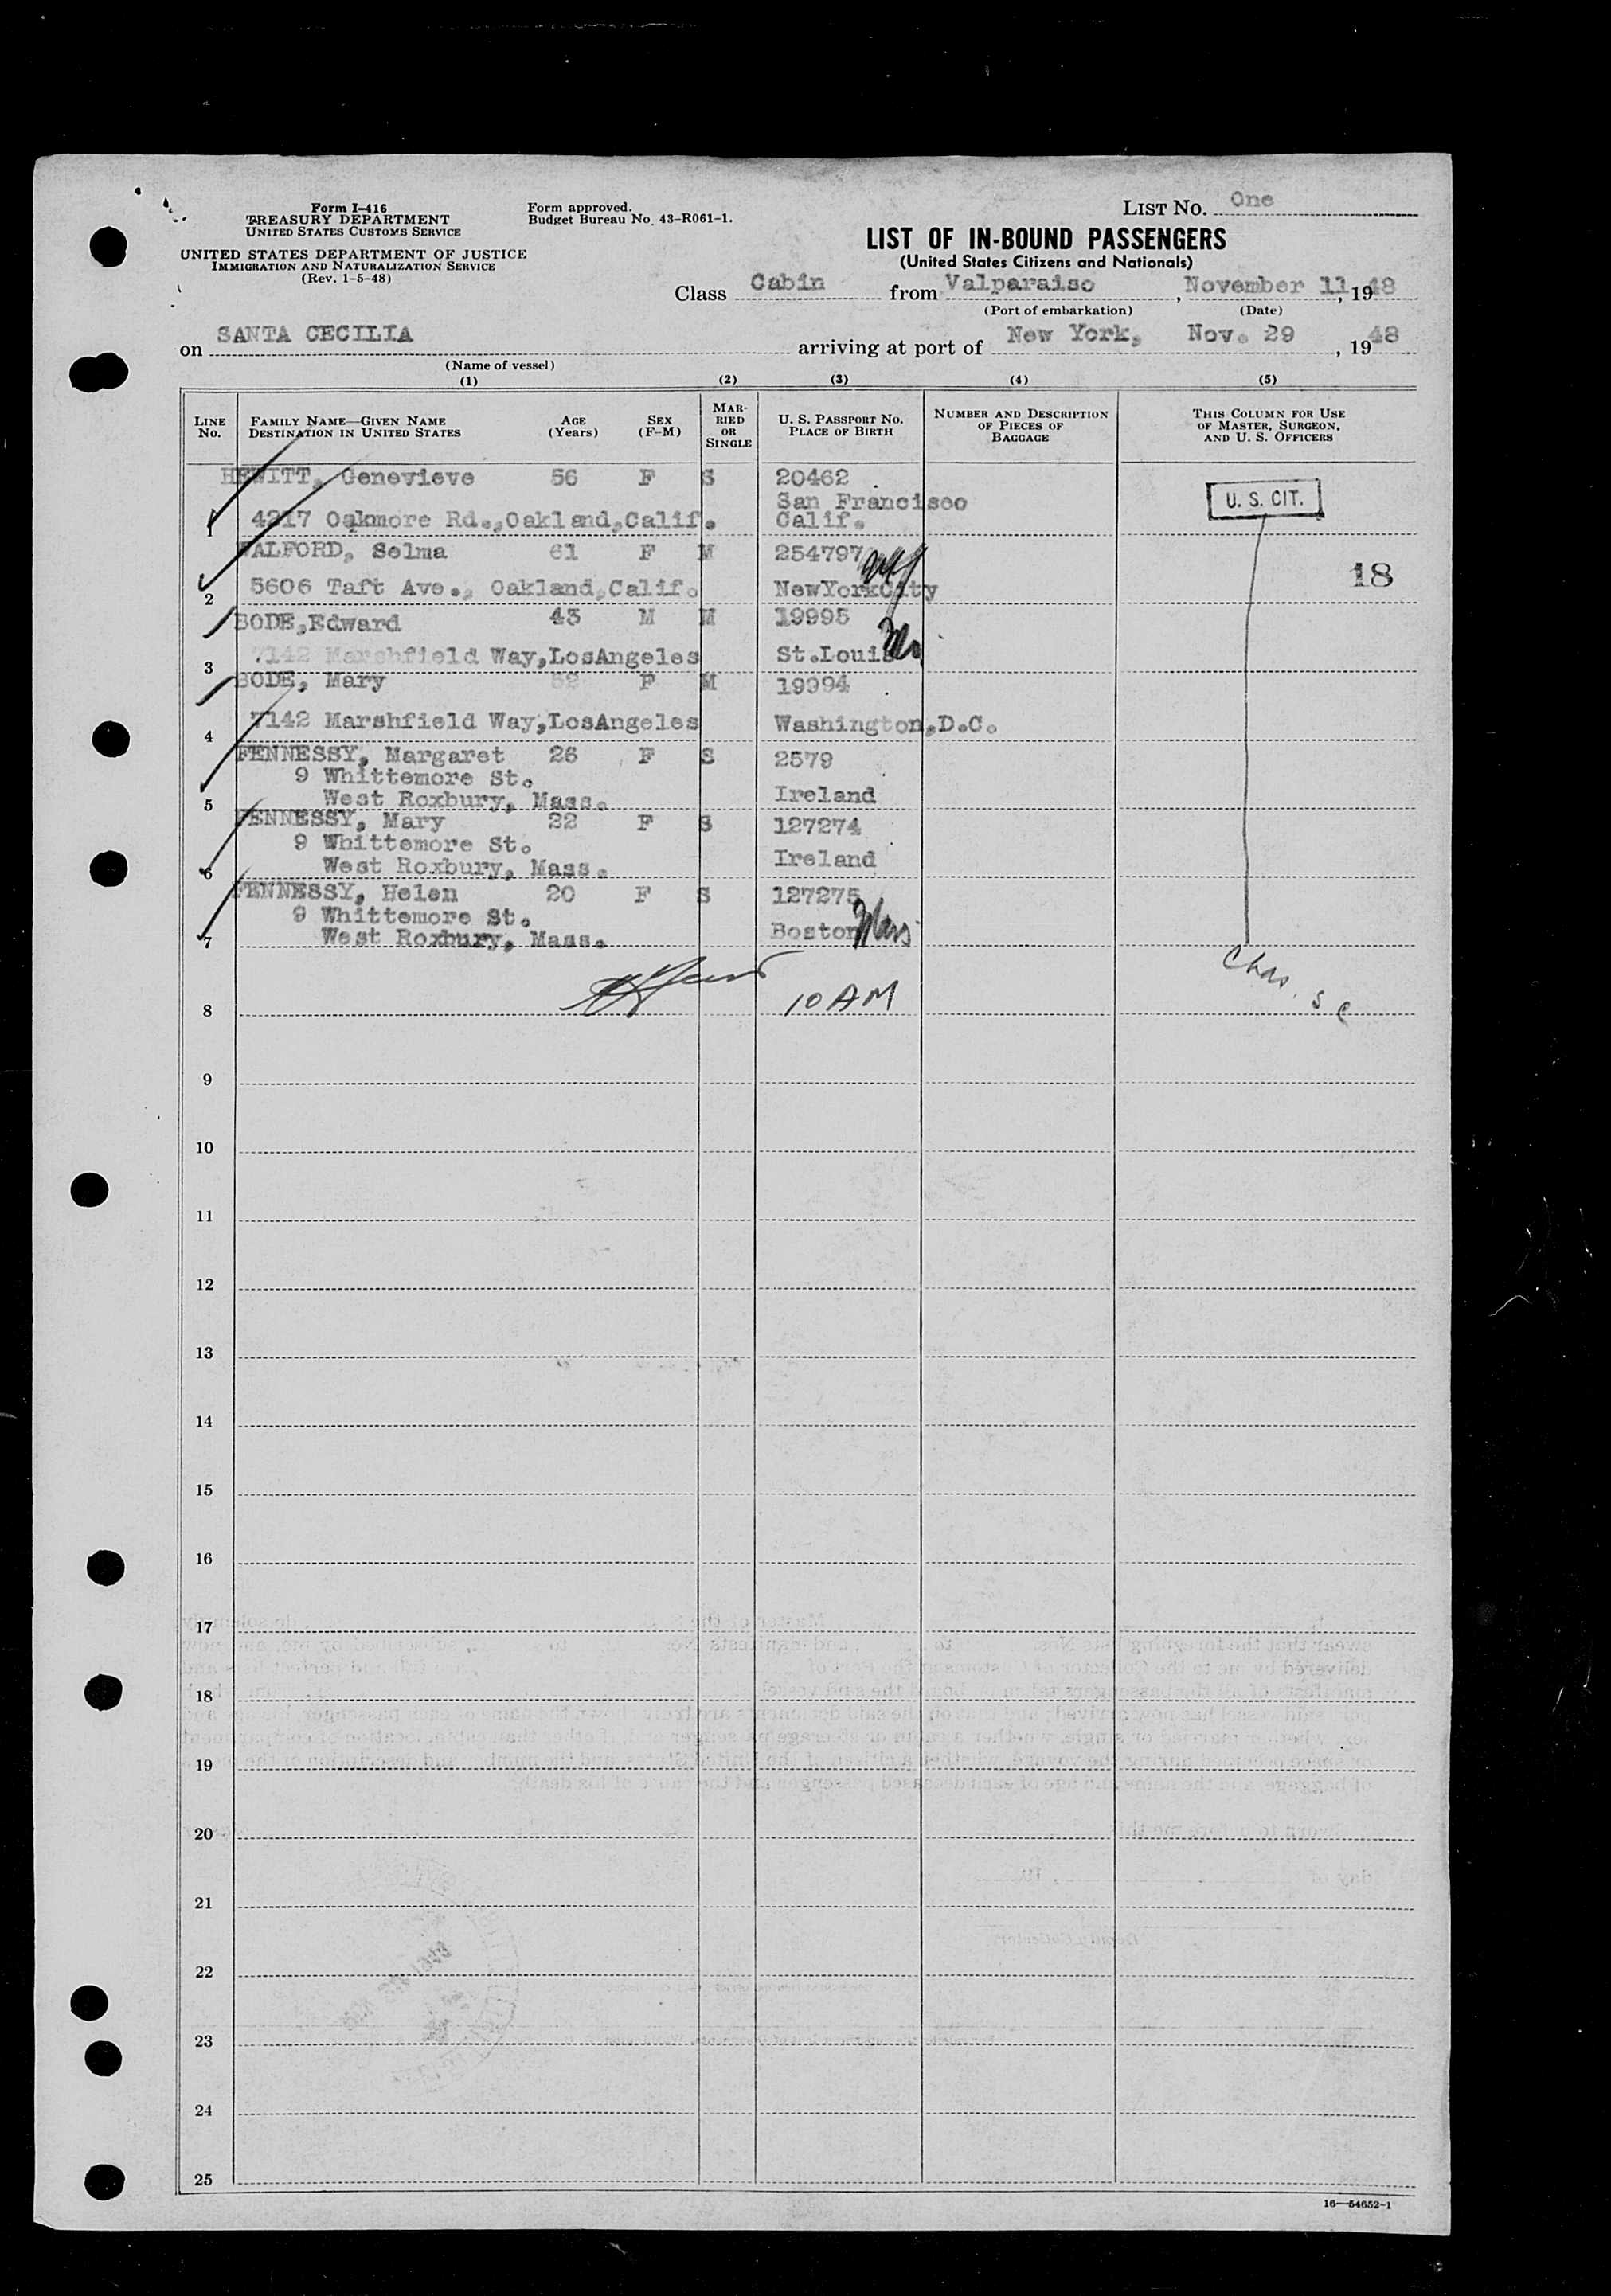 Form I-416
TREASURY DEPARTMENT
UNITED STATES CUSTOMS SERVICE
UNITED STATES DEPARTMENT OF JUSTICE
IMMIGRATION AND NATURALIZATION SERVICE
(Rev. 1-5-48)
Form approved.
Budget Bureau No. 43-R061-1.
LIST No. One
LIST OF IN-BOUND PASSENGERS
(United States Citizens and Nationals)
Class Cabin from Valparaiso, November 11, 1948
(Port of embarkation) (Date)
on SANTA CECILIA arriving at port of New York, Nov. 29, 1948
(Name of vessel)
(1) (2) (3) (4) (5)
LINE No. FAMILY NAME—GIVEN NAME DESTINATION IN UNITED STATES AGE (Years) SEX (F-M) MARRIED OR SINGLE U. S. PASSPORT No. PLACE OF BIRTH NUMBER AND DESCRIPTION OF PIECES OF BAGGAGE THIS COLUMN FOR USE OF MASTER, SURGEON, AND U. S. OFFICERS
HEWITT, Genevieve 56 F S 20462
San Francisco
1 4217 Oakmore Rd., Oakland, Calif. Calif.
U. S. CIT.
WALFORD, Selma 61 F M 254797
18
2 5606 Taft Ave., Oakland, Calif. NewYorkCity
BODE, Edward 43 M M 19995
3 7142 Marshfield Way, LosAngeles St.Louis
BODE, Mary F M 19994
4 7142 Marshfield Way, LosAngeles Washington, D.C.
FENNESSY, Margaret 26 F S 2579
9 Whittemore St.
5 West Roxbury, Mass. Ireland
FENNESSY, Mary 22 F S 127274
9 Whittemore St.
6 West Roxbury, Mass. Ireland
FENNESSY, Helen 20 F S 127275
9 Whittemore St.
7 West Roxbury, Mass. Boston Mass
Chas. S C
10 AM
8
9
10
11
12
13
14
15
16
17
18
19
20
21
22
23
24
25
16—54652-1